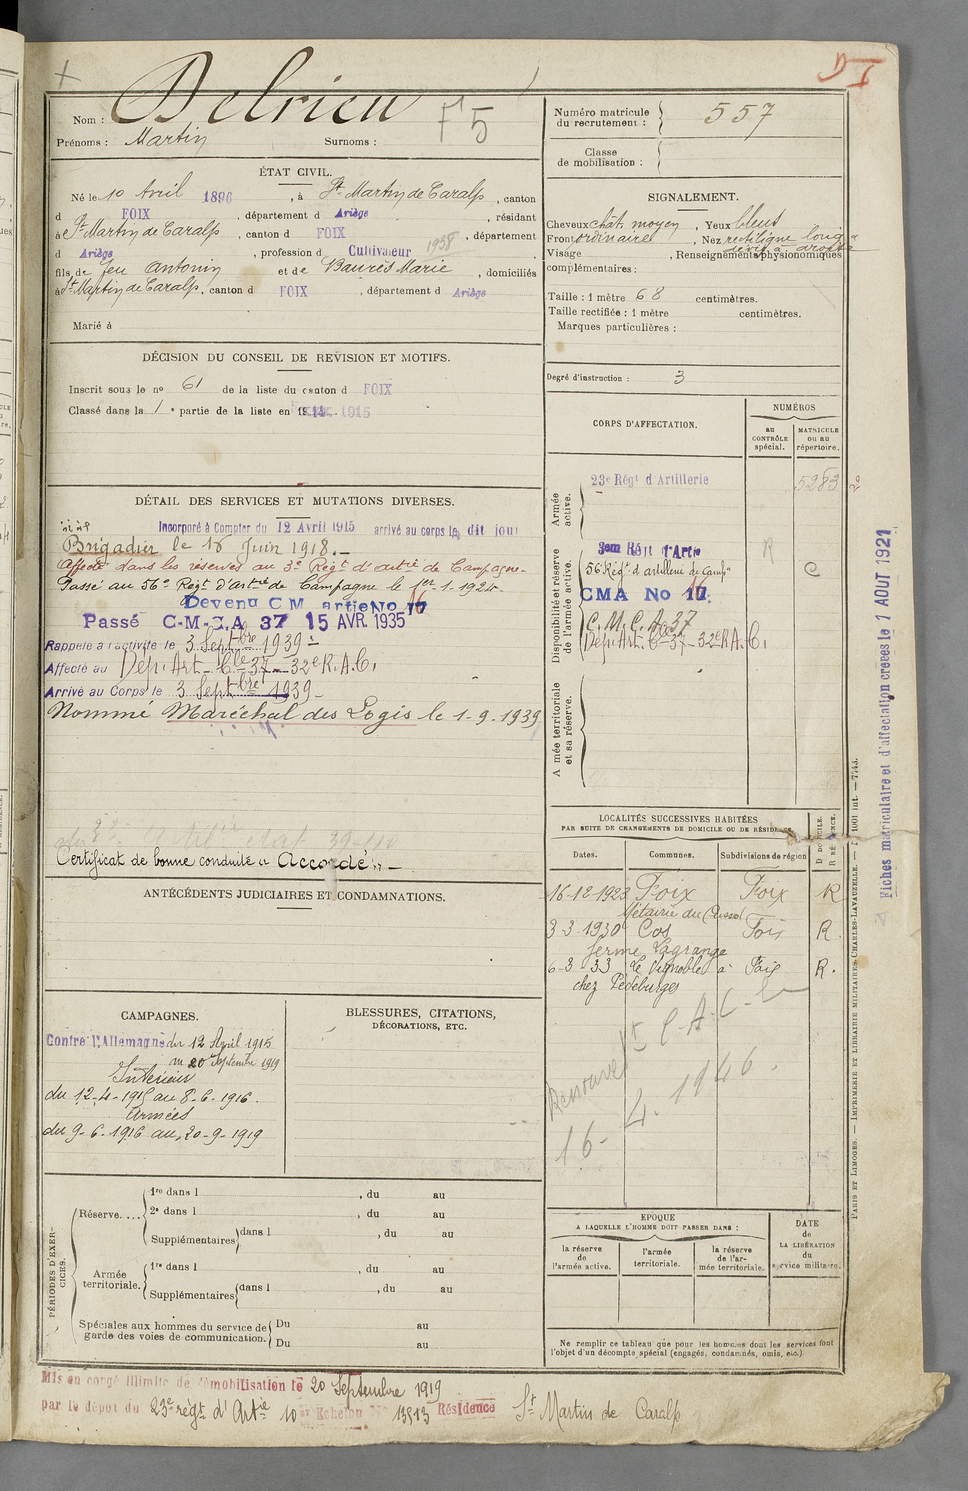 Nom : Delrieu
F 5
Prénoms : Martin Surnoms :
ÉTAT CIVIL.
Né le 10 Avril 1896, à St Martin de Caralp, canton
d FOIX, département d Ariège, résidant
à St Martin de Caralp, canton d FOIX, département
d Ariège, profession d Cultivateur 1938
fils de feu Antonin et de Baurès Marie, domiciliés
à St Martin de Caralp, canton d FOIX, département d Ariège
Marié à
DÉCISION DU CONSEIL DE REVISION ET MOTIFS.
Inscrit sous le no 61 de la liste du canton d FOIX
Classé dans la 1e partie de la liste en 1915
DÉTAIL DES SERVICES ET MUTATIONS DIVERSES.
Incorporé à Compter du 12 Avril 1915 arrivé au corps le dit jour
Brigadier le 16 Juin 1918.—
Affecté dans les réserves au 3e Régt d'artie de Campagne-
Passé au 56e Régt d'artie de Campagne le 1er-1-1924-
Devenu C M artie No 17 16
Passé C-M-C.A 37 15 AVR. 1935
Rappelé à l'activité le 3 Septbre 1939-
Affecté au Dép. Art. Cle 37 - 32e R.A.C.
Arrivé au Corps le 3 Septbre 1939-
Nommé Maréchal des Logis le 1-9-1939
Certificat de bonne conduite "Accordé"-
ANTÉCÉDENTS JUDICIAIRES ET CONDAMNATIONS.
CAMPAGNES.
Contre l'Allemagne du 12 April 1915
au 20 septembre 1919
Intérieur
du 12-4-1915 au 8-6-1916.
Armées
du 9-6-1916 au 20-9-1919
BLESSURES, CITATIONS,
DÉCORATIONS, ETC.
PÉRIODES D'EXERCICES.
Réserve....
1re dans l , du au
2e dans l , du au
Supplémentaires dans l , du au
Armée territoriale.
1re dans l , du au
Supplémentaires dans l , du au
Spéciales aux hommes du service de garde des voies de communication.
Du au
Du au
Mis en congé illimité de démobilisation le 20 Septembre 1919
par le dépôt du 23e régt d'Artie 10e Echelon No 13513 Résidence St Martin de Caralp
DI
Numéro matricule du recrutement : 557
Classe de mobilisation :
SIGNALEMENT.
Cheveux chât. moyen, Yeux bleus
Front ordinaire, Nez rectiligne long
dévié à droite
Visage , Renseignements physionomiques
complémentaires :
Taille : 1 mètre 68 centimètres.
Taille rectifiée : 1 mètre centimètres.
Marques particulières :
Degré d'instruction : 3
CORPS D'AFFECTATION.
NUMÉROS
au CONTRÔLE spécial.
MATRICULE ou au répertoire.
Armée active.
23e Régt d Artillerie 5283
Disponibilité et réserve de l'armée active.
3eme Régt d'Artie R
56e Régt d'artillerie de Campe C
CMA No 17. 16
C.M.C.A 37
Dép. Art. Cle 37 - 32e R.A.C.
Armée territoriale et sa réserve.
LOCALITÉS SUCCESSIVES HABITÉES
PAR SUITE DE CHANGEMENTS DE DOMICILE OU DE RÉSIDENCE.
Dates. Communes. Subdivisions de région D DOMICILE. R RÉSIDENCE.
16-12-1923 Foix Foix R
3-3-1930 Cos Foix R.
ferme Lagrange
6-3 33 Le Vignoble à Foix R.
chez Pédeburges
16-4.1946.
EPOQUE
A LAQUELLE L'HOMME DOIT PASSER DANS :
la réserve de l'armée active.
l'armée territoriale.
la réserve de l'armée territoriale.
DATE de LA LIBÉRATION du service militaire.
Ne remplir ce tableau que pour les hommes dont les services font
l'objet d'un décompte spécial (engagés, condamnés, omis, etc.).
Fiches matriculaire et d'affectation créées le 1 AOUT 1921
PARIS ET LIMOGES. — IMPRIMERIE ET LIBRAIRIE MILITAIRES CHARLES-LAVAUZELLE.